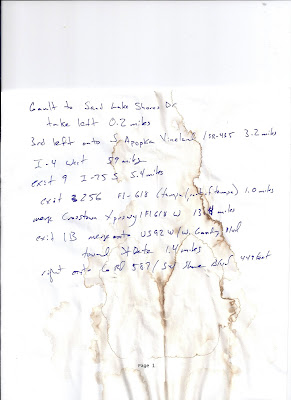 Gault to Sand Lake Shores Dr
take left 0.2 miles
3rd left onto S Apopka Vineland / SR-435 3.2 miles
I-4 West 59 miles
exit 9 I-75 S 5.4 miles
exit 256 Fl-618 (tampa 1.0 miles
merge Crosstown Xpressway / Fl 618 W 13 miles
exit 1B merge onto US 92 W / W. Gandy Blvd
toward St Pete 1.4 miles
right onto Co Rd 587 / Shore Blvd feet
PAGE 1